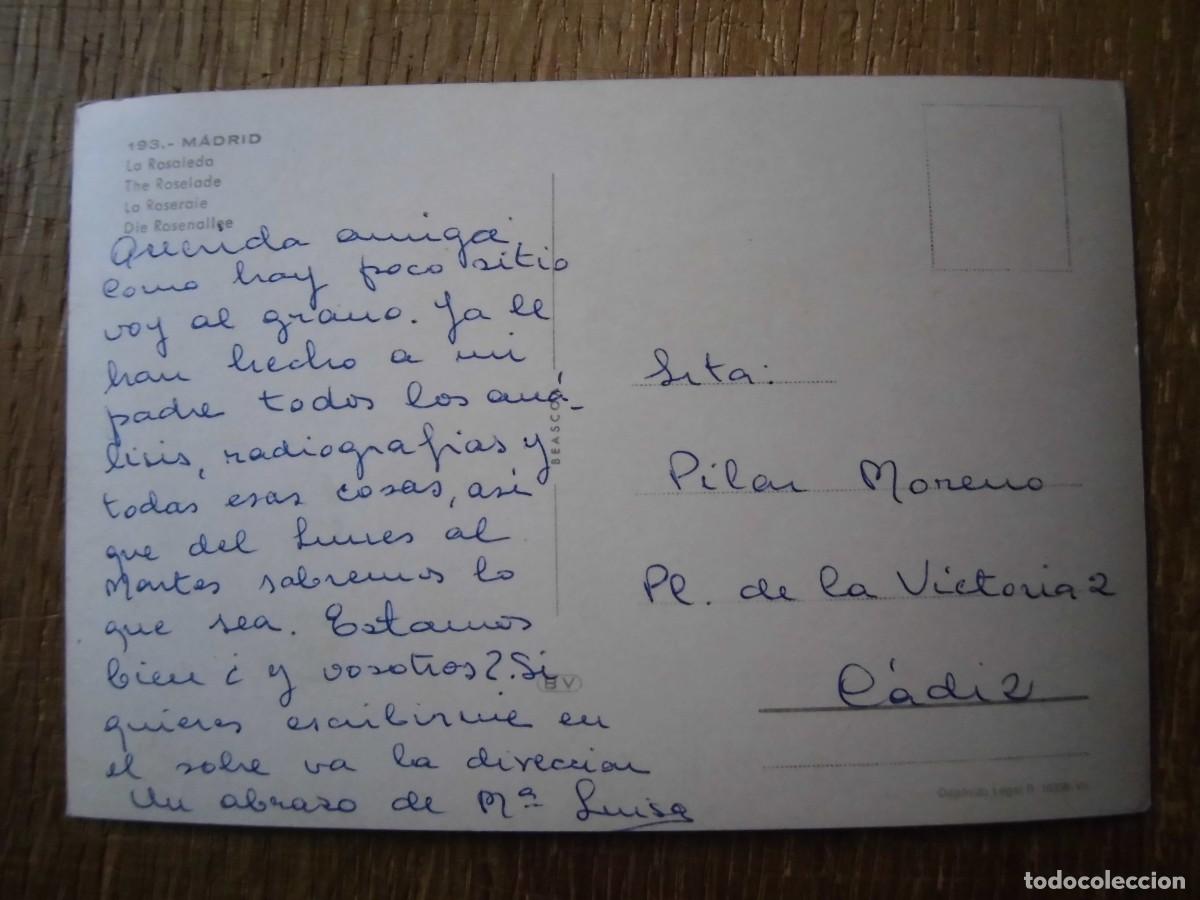 193.- MADRID
La Rosaleda
The Roselade
La Roseraie
Die Rosenallee
Querida amiga,
como hay poco sitio
voy al grano. Ya le
han hecho a mi
padre todos los aná-
lisis, radiografias y
todas esas cosas, asi
que del Lunes al
Martes sabremos lo
que sea. Estamos
bien ¿ y vosotros?. Si
quieres escribirme en
el sobre va la direccion
Un abrazo de Mª Luisa
BEASCOA
BV
Srta.
Pilar Moreno
Pl. de la Victoria 2
Cádiz
Depósito Legal B.
todocoleccion